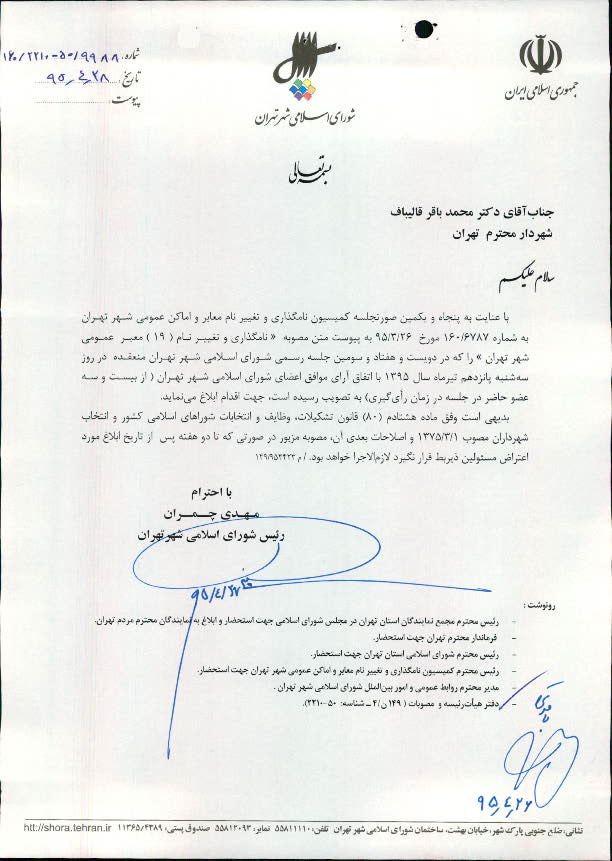 جمهوری اسلامی ایران
شورای اسلامی شهر تهران
شماره: ۱۶۰/۲۲۱۰-۵۰/۹۹۸۸
تاریخ: ۹۵/۴/۲۸
پیوست:
بسمه تعالی
جناب آقای دکتر محمد باقر قالیباف
شهردار محترم تهران
سلام علیکم
با عنایت به پنجاه و یکمین صورتجلسه کمیسیون نامگذاری و تغییر نام معابر و اماکن عمومی شهر تهران
به شماره ۱۶۰/۶۷۸۷ مورخ ۹۵/۳/۲۶ به پیوست متن مصوبه « نامگذاری و تغییر نـام ( ۱۹ ) معبر عمومی
شهر تهران » را که در دویست و هفتاد و سومین جلسه رسمی شورای اسلامی شهر تهران منعقـده در روز
سه‌شنبه پانزدهم تیرماه سال ۱۳۹۵ با اتفاق آرای موافق اعضای شورای اسلامی شهر تهران ( از بیست و سه
عضو حاضر در جلسه در زمان رأی‌گیری) به تصویب رسیده است، جهت اقدام ابلاغ می‌نماید.
بدیهی است وفق ماده هشتادم (۸۰) قانون تشکیلات، وظایف و انتخابات شوراهای اسلامی کشور و انتخاب
شهرداران مصوب ۱۳۷۵/۳/۱ و اصلاحات بعدی آن، مصوبه مزبور در صورتی که تا دو هفته پس از تاریخ ابلاغ مورد
اعتراض مسئولین ذیربط قرار نگیرد لازم‌الاجرا خواهد بود. / م ۱۴۹/۹۵۲۴۲۲
با احترام
مـهـدی چـمـران
رئیس شورای اسلامی شهر تهران
رونوشت :
- رئیس محترم مجمع نمایندگان استان تهران در مجلس شورای اسلامی جهت استحضار و ابلاغ به نمایندگان محترم مردم تهران.
- فرماندار محترم تهران جهت استحضار.
- رئیس محترم شورای اسلامی استان تهران جهت استحضار.
- رئیس محترم کمیسیون نامگذاری و تغییر نام معابر و اماکن عمومی شهر تهران جهت استحضار.
- مدیر محترم روابط عمومی و امور بین‌الملل شورای اسلامی شهر تهران .
- دفتر هیأت‌رئیسه و مصوبات ( ۱۴۹ ن/۴ ـ شناسه: ۵۰-۲۲۱۰).
۹۵/۴/۲۶
نشانی: ضلع جنوبی پارک شهر، خیابان بهشت، ساختمان شورای اسلامی شهر تهران تلفن: ۵۵۸۱۱۱۱۰ نمابر: ۵۵۸۱۲۰۹۳ صندوق پستی: ۱۱۳۶۵/۴۳۸۹ htt://shora.tehran.ir